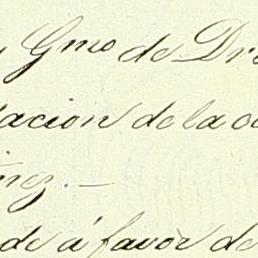 Gmo de Dr
acion de la
nez.—
de á favor de